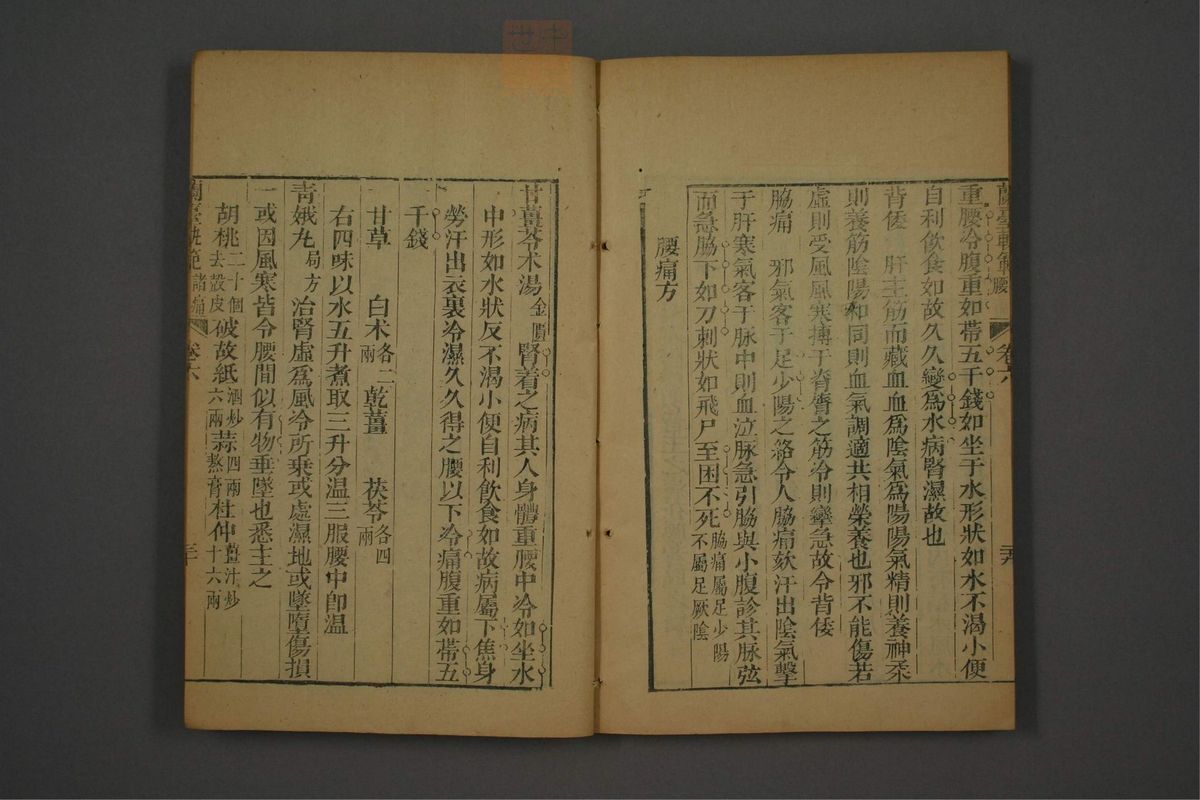 蘭臺軌範 腰 卷六
重腰冷腹重如帶五千錢如坐于水形狀如水不渴小便
自利飲食如故久久變爲水病腎濕故也
背僂 肝主筋而藏血血爲陰氣爲陽陽氣精則養神柔
則養筋陰陽和同則血氣調適共相榮養也邪不能傷若
虛則受風風寒搏于脊膂之筋冷則攣急故令背僂
脇痛 邪氣客于足少陽之絡令人脇痛欬汗出陰氣擊
于肝寒氣客于脉中則血泣脉急引脇與小腹診其脉弦
而急脇下如刀刺狀如飛尸至困不死脇痛屬足少陽不屬足厥陰
腰痛方
甘薑苓术湯金匱 腎着之病其人身體重腰中冷如坐水
中形如水狀反不渴小便自利飲食如故病屬下焦身
勞汗出衣裏冷濕久久得之腰以下冷痛腹重如帶五
千錢
甘草 白术各二兩 乾薑 茯苓各四兩
右四味以水五升煮取三升分溫三服腰中卽溫
靑娥丸局方 治腎虛爲風冷所乘或處濕地或墜墮傷損
一或因風寒皆令腰間似有物垂墜也悉主之
胡桃二十個去殼皮 破故紙酒炒六兩 蒜四兩熬膏 杜仲薑汁炒十六兩
蘭臺軌範 諸痛 卷六